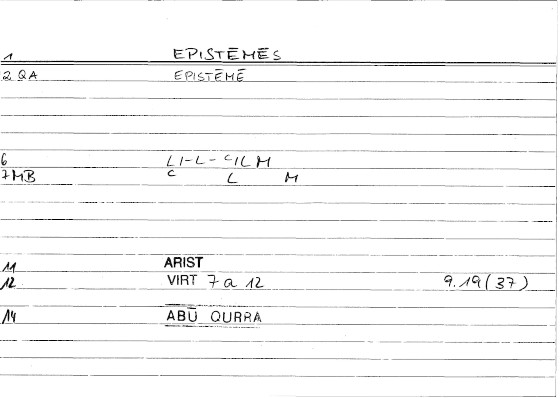 1 EPISTĒMĒS
2 QA EPISTĒMĒ
6 LI-L-ᶜILM
7 MB ᶜ L M
11 ARIST
12 VIRT 7 a 12 9.19(37)
14 ABŪ QURRA